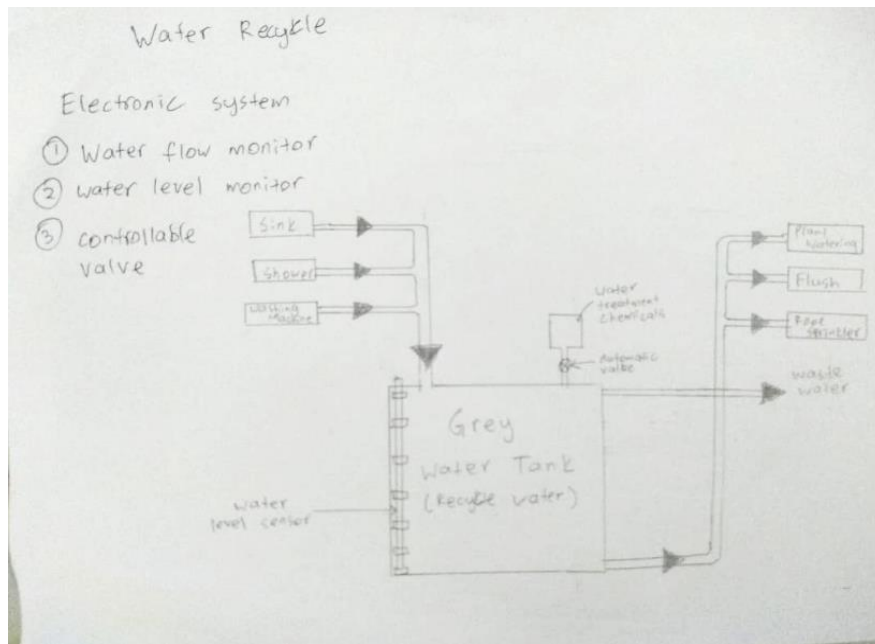 Water Recykle
Electronic system
① Water flow monitor
② water level monitor
③ controllable
valve
Sink
Shower
Washing
Machine
water
treatment
chemicals
automatic
valve
Plant
Watering
Flush
Rope
sprinkler
waste
water
Grey
Water Tank
(Recykle water)
water
level censor